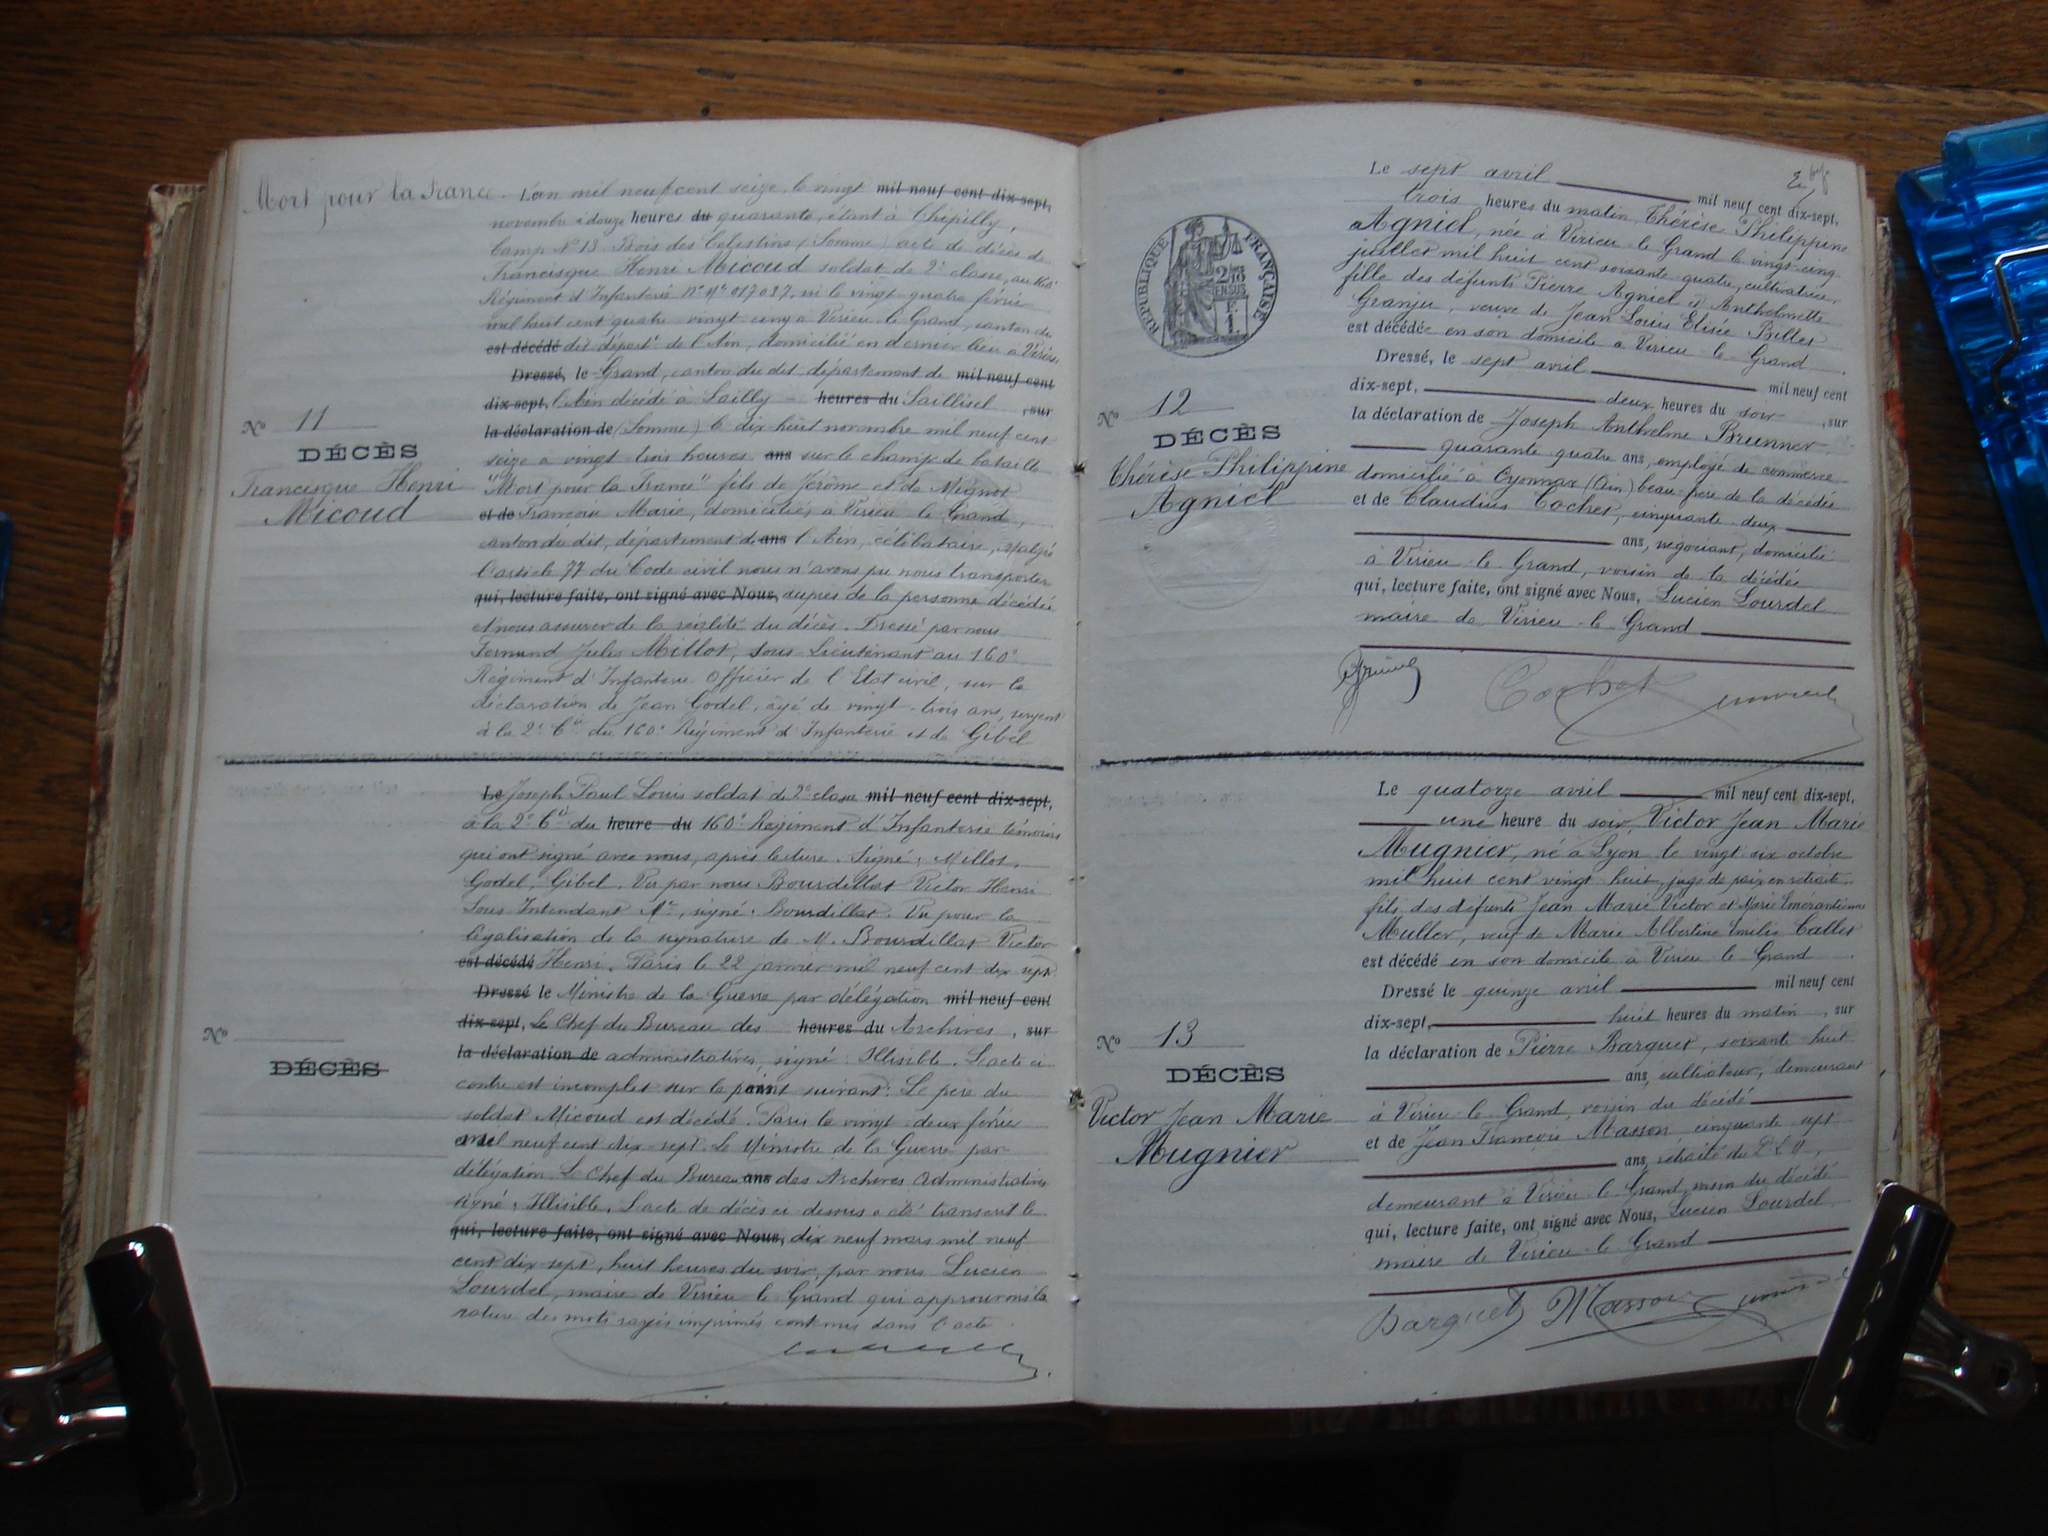 Mort pour la France
L'an mil neuf cent seize, le vingt mil neuf cent dix-sept,
novembre à douze heures du quarante, étant à Chipilly,
Camp N° 13 Bois des Célestins (Somme) acte de décès de
Francisque Henri Micoud soldat de 2e classe, au 160e
Régiment d'Infanterie N° Mle 017037, né le vingt-quatre février
mil huit cent quatre vingt cinq à Virieu-le-Grand, canton du
est décédé dit départt de l'Ain, domicilié en dernier lieu à Virieu
Dressé, le Grand, canton du dit département de mil neuf cent
dix-sept, l'Ain décédé à Sailly heures du Saillisel, sur
la déclaration de (Somme) le dix-huit novembre mil neuf cent
seize à vingt trois heures ans sur le champ de bataille
"Mort pour la France" fils de Jérôme et de Mignot
et de Françoise Marie, domiciliés à Virieu le Grand,
canton du dit, département de ans l'Ain, célibataire, Malgré
l'article 77 du Code civil nous n'avons pu nous transporter
qui, lecture faite, ont signé avec Nous, auprès de la personne décédée
et nous assurer de la réalité du décès. Dressé par nous
Fernand Jules Millot, Sous Lieutenant au 160e
Régiment d'Infanterie Officier de l'Etat civil, sur la
déclaration de Jean Godel, âgé de vingt-trois ans, sergent
à la 2e Cie du 160e Régiment d'Infanterie et de Gibel
N° 11
DÉCÈS
Francisque Henri
Micoud
Le Joseph Paul Louis soldat de 2e classe mil neuf cent dix-sept,
à la 2e Cie du heure du 160e Régiment d'Infanterie témoins
qui ont signé avec nous, après lecture. Signé: Millot,
Godel, Gibel. Vu par nous Bourdillat Victor Henri
Sous Intendant Mre, signé: Bourdillat. Vu pour la
légalisation de la signature de M. Bourdillat Victor
est décédé Henri. Paris le 22 janvier mil neuf cent dix sept
Dressé le Ministre de la Guerre par délégation mil neuf cent
dix-sept, Le Chef du Bureau des heures du Archives, sur
la déclaration de administratives, signé: Illisible. L'acte ci
contre est incomplet sur le point ans suivant: Le père du
soldat Micoud est décédé. Paris le vingt-deux février
mil neuf cent dix sept. Le Ministre de la Guerre par
délégation. Le Chef du Bureau ans des Archives Administratives
signé: Illisible. L'acte de décès ci dessus a été transcrit le
qui, lecture faite, ont signé avec Nous, dix neuf mars mil neuf
cent dix sept, huit heures du soir, par nous Lucien
Lourdel, maire de Virieu le Grand qui approuvons la
rature des mots rayés imprimés contenus dans l'acte.
N°
DÉCÈS
RÉPUBLIQUE FRANÇAISE
Le sept avril mil neuf cent dix-sept,
trois heures du matin, Thérèse Philippine
Agniel, née à Virieu-le-Grand le vingt-cinq
juillet mil huit cent soixante quatre, cultivatrice,
fille des défunts Pierre Agniel et Anthelmette
Granju, veuve de Jean Louis Elisée Billet
est décédée en son domicile à Virieu-le-Grand.
Dressé, le sept avril mil neuf cent
dix-sept, deux heures du soir, sur
la déclaration de Joseph Anthelme Brunner
quarante quatre ans, employé de commerce
domicilié à Oyonnax (Ain) beau-père de la décédée
et de Claudius Cochet, cinquante-deux
ans, négociant, domicilié
à Virieu-le-Grand, voisin de la décédée
qui, lecture faite, ont signé avec Nous, Lucien Lourdel
maire de Virieu-le-Grand
Cochet
N° 12
DÉCÈS
Thérèse Philippine
Agniel
Le quatorze avril mil neuf cent dix-sept,
une heure du soir, Victor Jean Marie
Mugnier, né à Lyon le vingt-six octobre
mil huit cent vingt huit, juge de paix en retraite
fils des défunts Jean Marie Victor et Marie Emérantienne
Muller, veuf de Marie Albertine Emilie Callet
est décédé en son domicile à Virieu-le-Grand.
Dressé le quinze avril mil neuf cent
dix-sept, huit heures du matin, sur
la déclaration de Pierre Barquet, soixante huit
ans, cultivateur, demeurant
à Virieu-le-Grand, voisin du décédé
et de Jean François Masson cinquante sept
ans, retraité du P.L.M.,
demeurant à Virieu-le-Grand, voisin du décédé
qui, lecture faite, ont signé avec Nous, Lucien Lourdel
maire de Virieu-le-Grand
Barquet Masson
N° 13
DÉCÈS
Victor Jean Marie
Mugnier